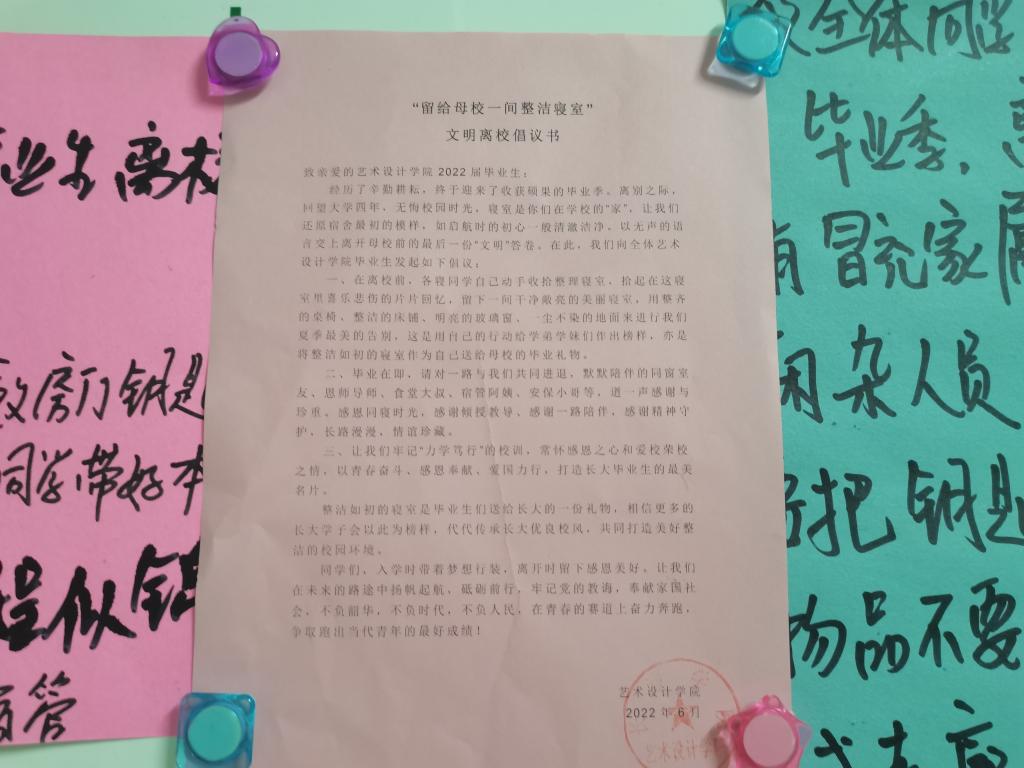 业生离校
放房门钥匙
同学带好本
管
“留给母校一间整洁寝室”
文明离校倡议书
致亲爱的艺术设计学院 2022 届毕业生：
经历了辛勤耕耘，终于迎来了收获硕果的毕业季。离别之际，
回望大学四年，无悔校园时光，寝室是你们在学校的“家”，让我们
还原宿舍最初的模样，如启航时的初心一般清澈洁净，以无声的语
言交上离开母校前的最后一份“文明”答卷。在此，我们向全体艺术
设计学院毕业生发起如下倡议：
一、在离校前，各寝同学自己动手收拾整理寝室，拾起在这寝
室里喜乐悲伤的片片回忆，留下一间干净敞亮的美丽寝室，用整齐
的桌椅、整洁的床铺、明亮的玻璃窗、一尘不染的地面来进行我们
夏季最美的告别，这是用自己的行动给学弟学妹们作出榜样，亦是
将整洁如初的寝室作为自己送给母校的毕业礼物。
二、毕业在即，请对一路与我们共同进退，默默陪伴的同窗室
友、恩师导师、食堂大叔、宿管阿姨、安保小哥等，道一声感谢与
珍重。感恩同寝时光，感谢倾授教导、感谢一路陪伴，感谢精神守
护，长路漫漫，情谊珍藏。
三、让我们牢记“力学笃行”的校训，常怀感恩之心和爱校荣校
之情，以青春奋斗、感恩奉献、爱国力行，打造长大毕业生的最美
名片。
整洁如初的寝室是毕业生们送给长大的一份礼物，相信更多的
长大学子会以此为榜样，代代传承长大优良校风，共同打造美好整
洁的校园环境。
同学们，入学时带着梦想行装，离开时留下感恩美好。让我们
在未来的路途中扬帆起航，砥砺前行，牢记党的教诲，奉献家国社
会，不负韶华，不负时代，不负人民，在青春的赛道上奋力奔跑，
争取跑出当代青年的最好成绩！
艺术设计学院
2022 年 6 月
艺术设计学
全体同学
毕业季，
冒充家属
闲杂人员
把钥匙
物品不要